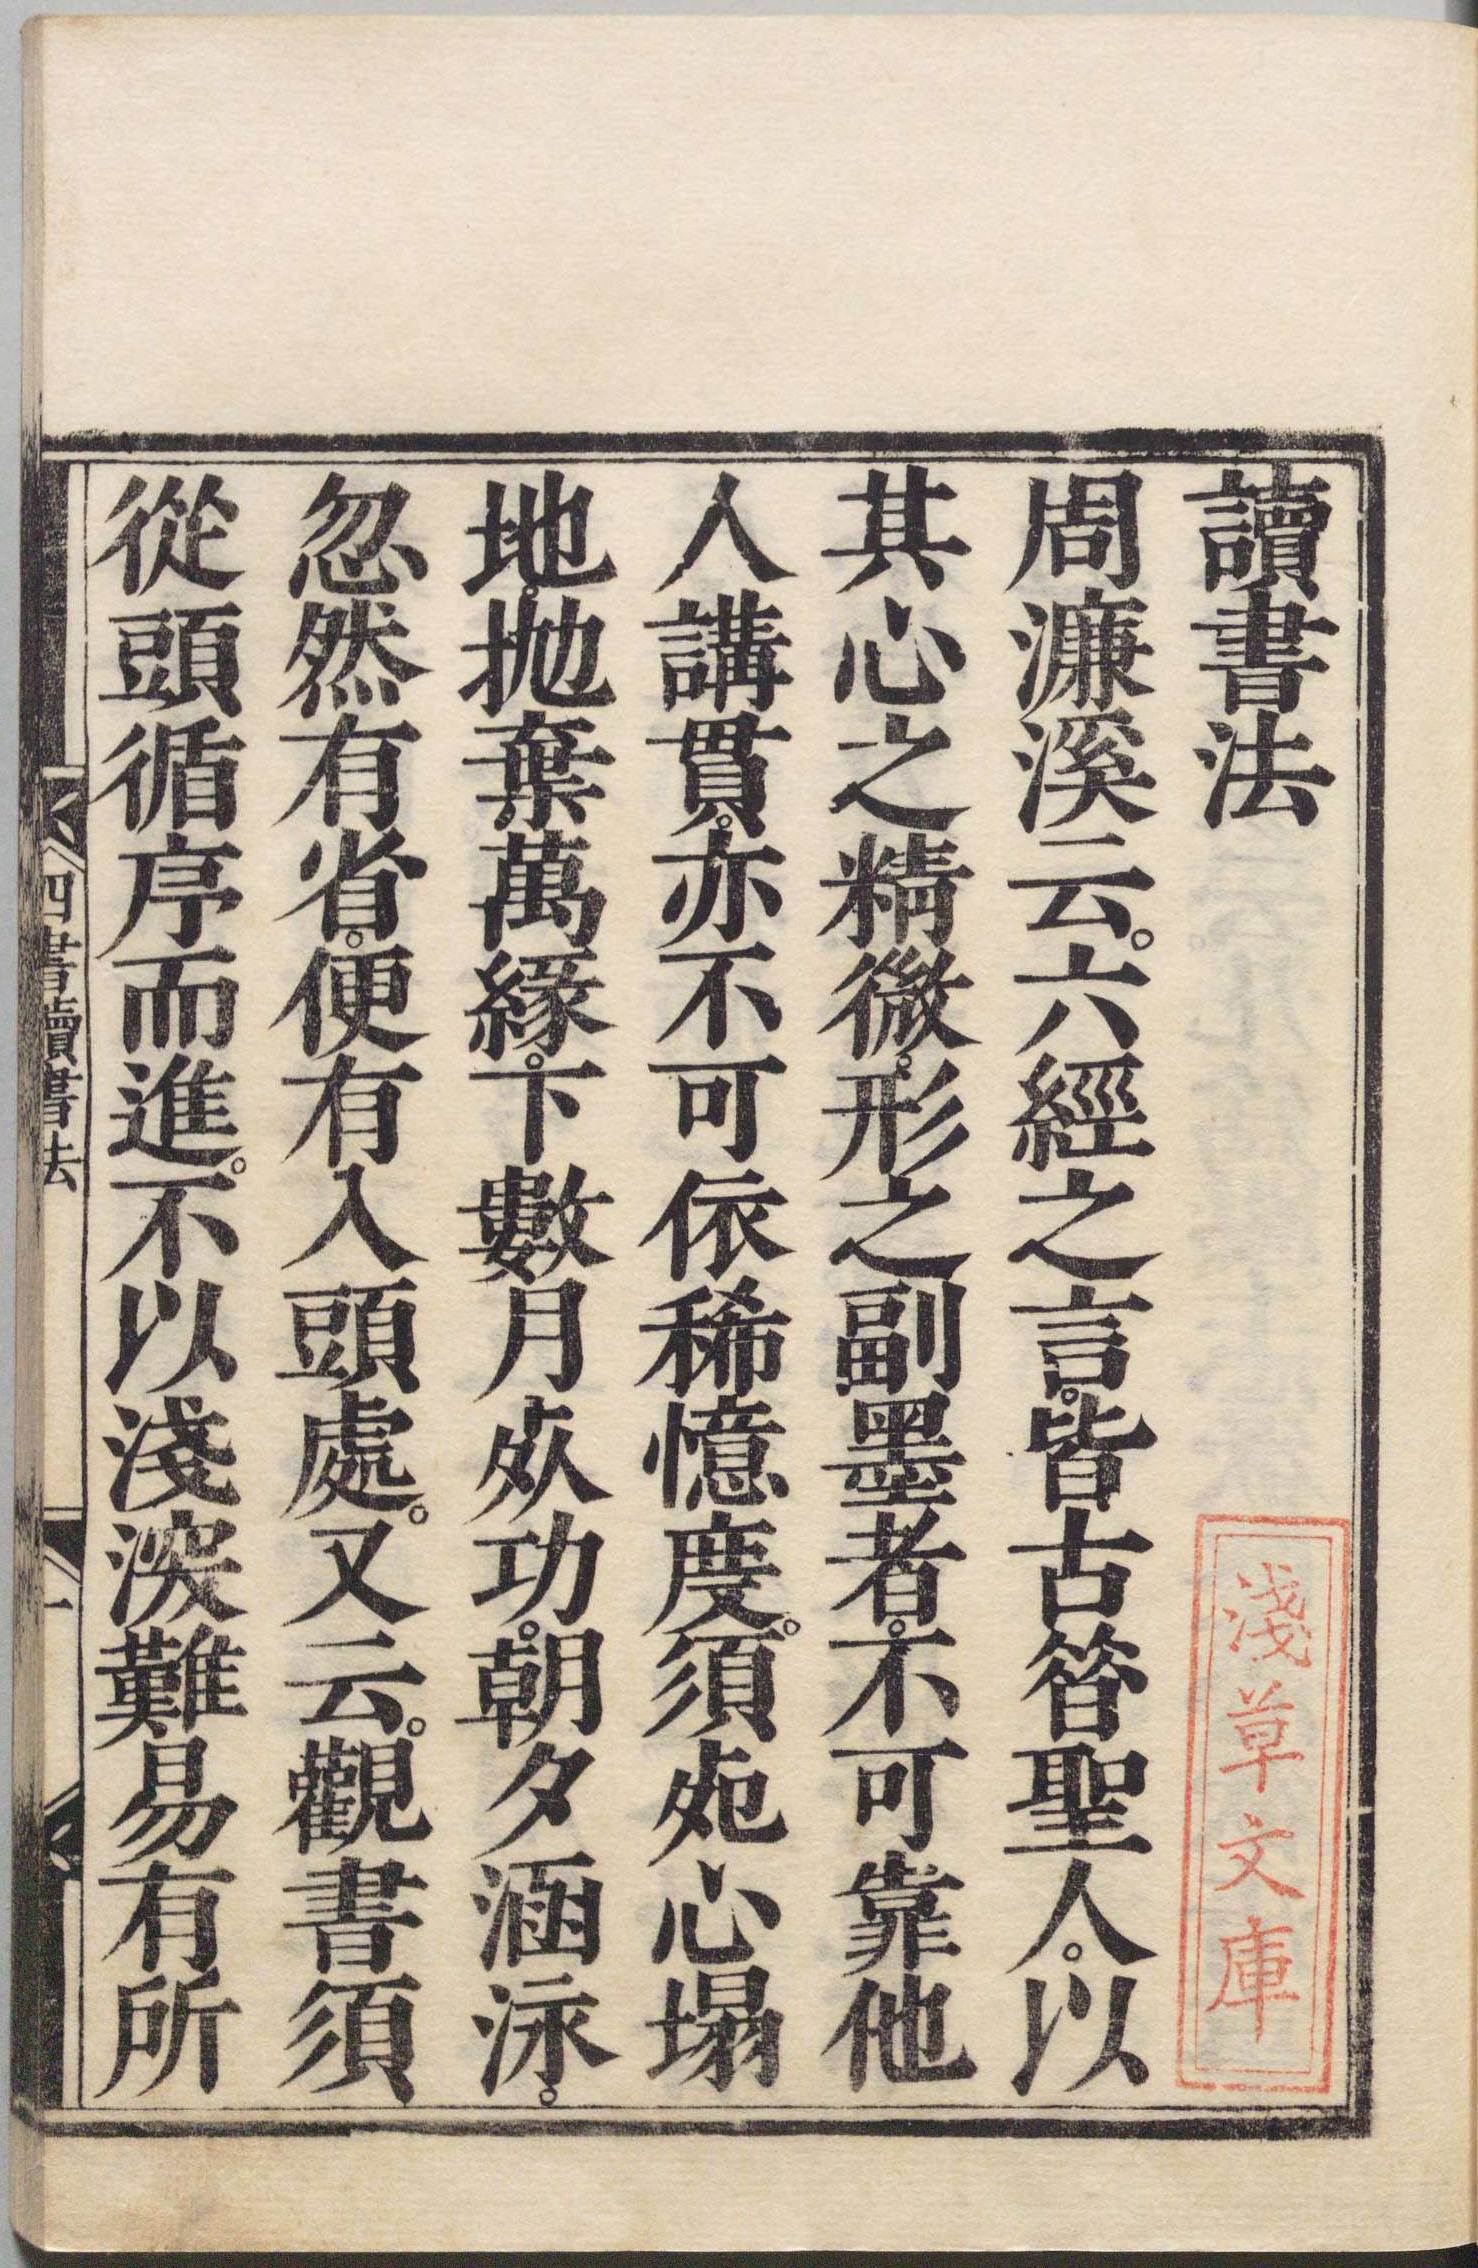 讀書法
周濂溪云。六經之言。皆古昝聖人。以
其心之精微。形之副墨者。不可靠他
人講貫。亦不可依稀憶度。須𡖖心塌
地。抛棄萬緣。下數月灰功。朝夕涵泳。
忽然有省。便有入頭處。又云。觀書須
從頭循序而進。不以淺深難易有所
四書讀書法
一
淺草文庫